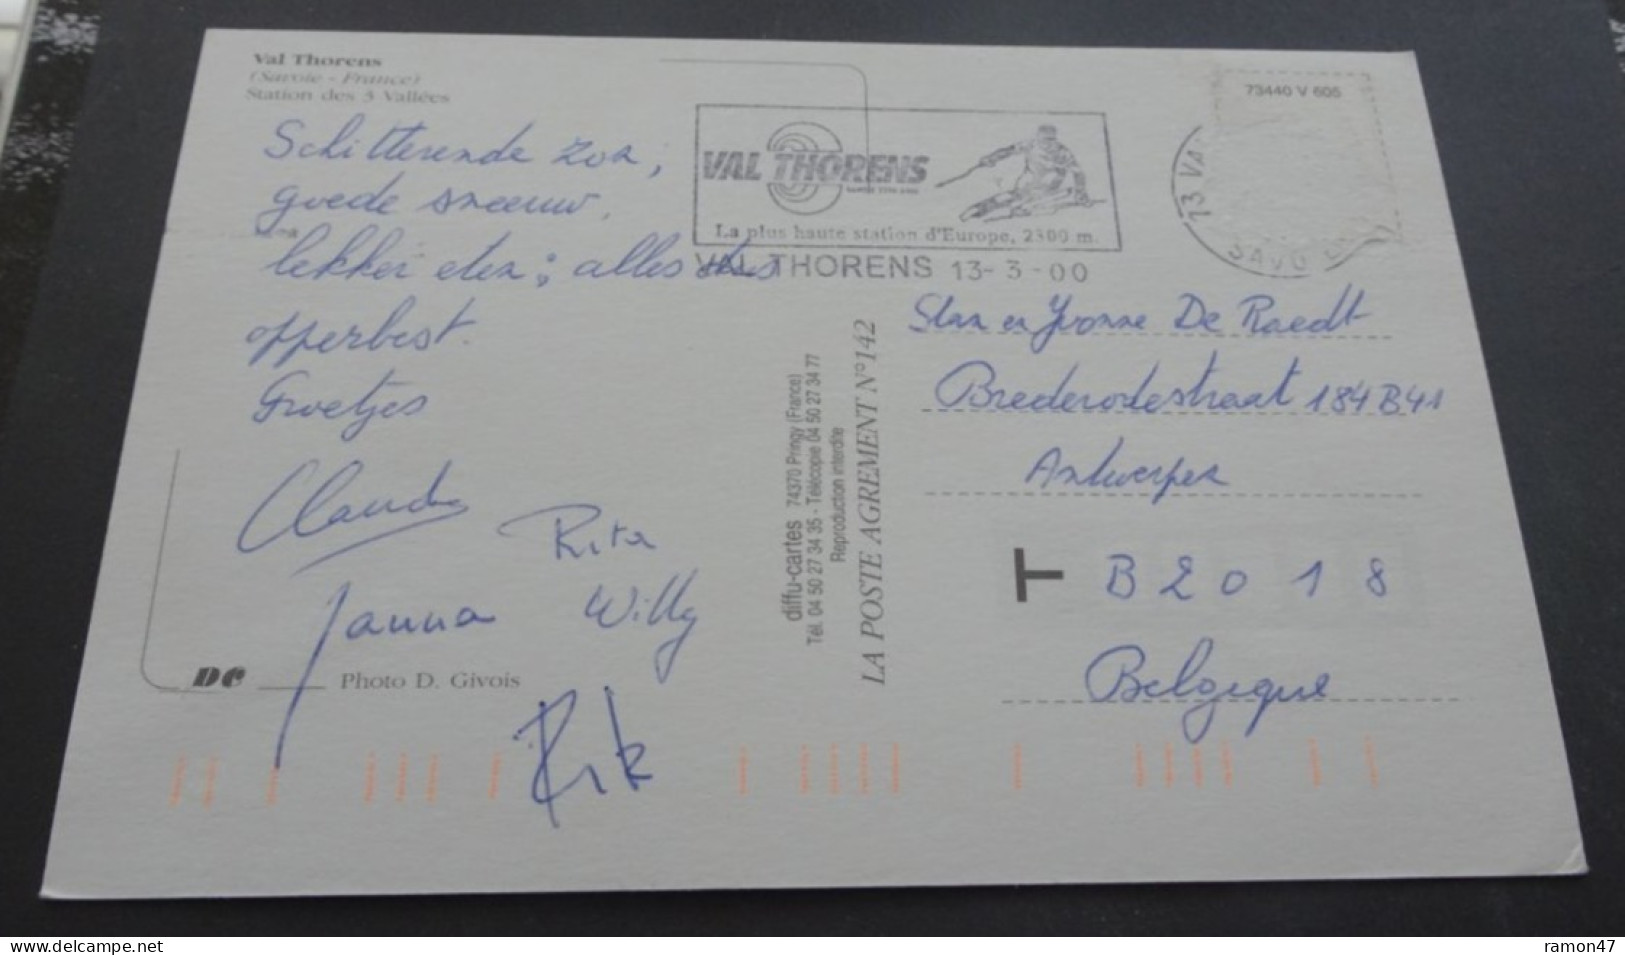 Val Thorens
(Savoie - France)
Station des 3 Vallées
Schitterende zon,
goede sneeuw,
lekker eten; alles
opperbest.
Groetjes
Claude
Rita
Janna
Willy
Rik
DC
Photo D. Givois
diffu-cartes 74370 Pringy (France)
Tél. 04 50 27 34 35 - Télécopie 04 50 27 34 77
Reproduction interdite
LA POSTE AGREMENT N°142
VAL THORENS
La plus haute station d'Europe, 2300 m.
VAL THORENS 13-3-00
73440 V 605
73 VA
SAVO
Stan en Yvonne De Raedt
Brederodestraat 184 B41
Antwerpen
T B2018
Belgique
www.delcampe.net
ramon47